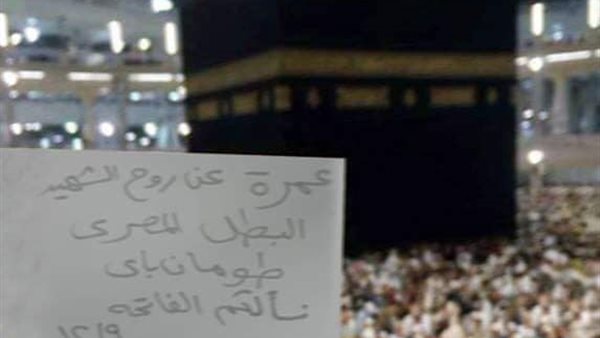 عمرة عن روح الشهيد
البطل المصرى
طومان باى
نسألكم الفاتحه
١٢/٩